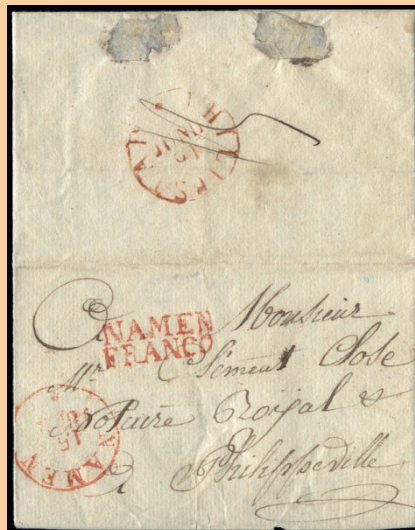 NAMEN
FRANCO
A Monsieur
Mr Clément Close
Notaire Royal &
A Philippeville
NAMEN
15